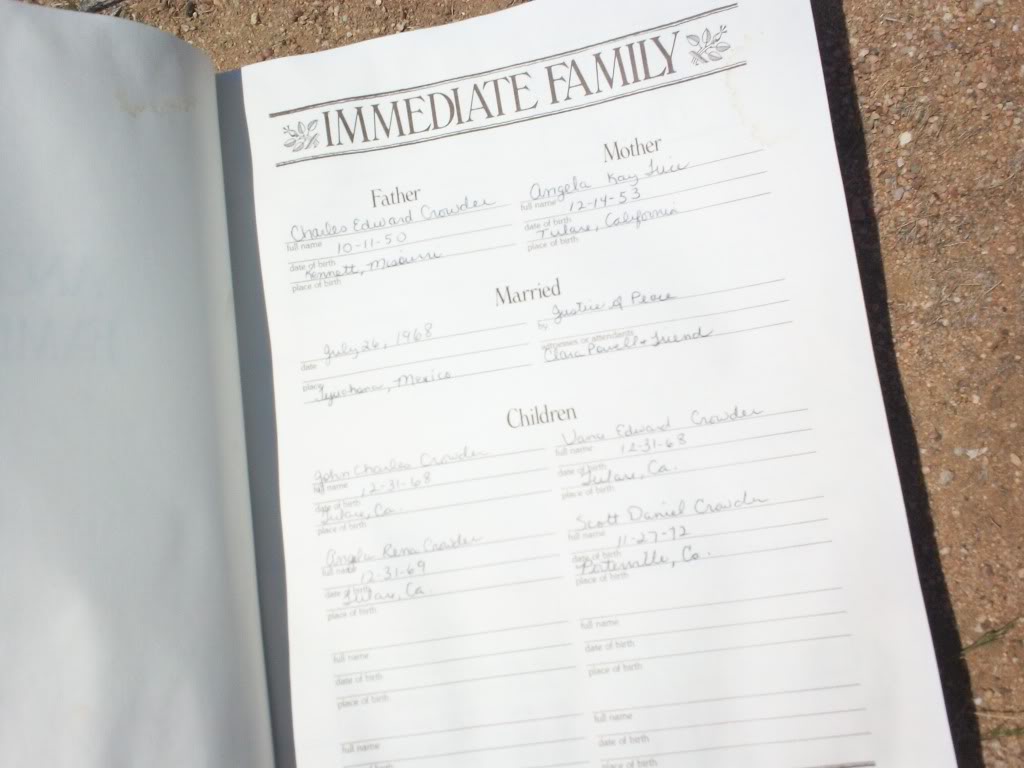 IMMEDIATE FAMILY
Father
Mother
Charles Edward Crowder
full name
10-11-50
date of birth
Kennett, Missouri
place of birth
Angela Kay
full name
12-14-53
date of birth
Tulare, California
place of birth
Married
July 26, 1968
date
place
Mexico
Justice of Peace
by
witnesses or attendants
Clara Friend
Children
John Charles Crowder
full name
12-31-68
date of birth
Tulare, Ca.
place of birth
Edward Crowder
full name
12-31-68
date of birth
Tulare, Ca.
place of birth
Angela Rena Crowder
full name
12-31-69
date of birth
Tulare, Ca.
place of birth
Scott Daniel Crowder
full name
11-27-72
date of birth
Porterville, Ca.
place of birth
full name
date of birth
place of birth
full name
date of birth
place of birth
full name
date of birth
full name
date of birth
place of birth